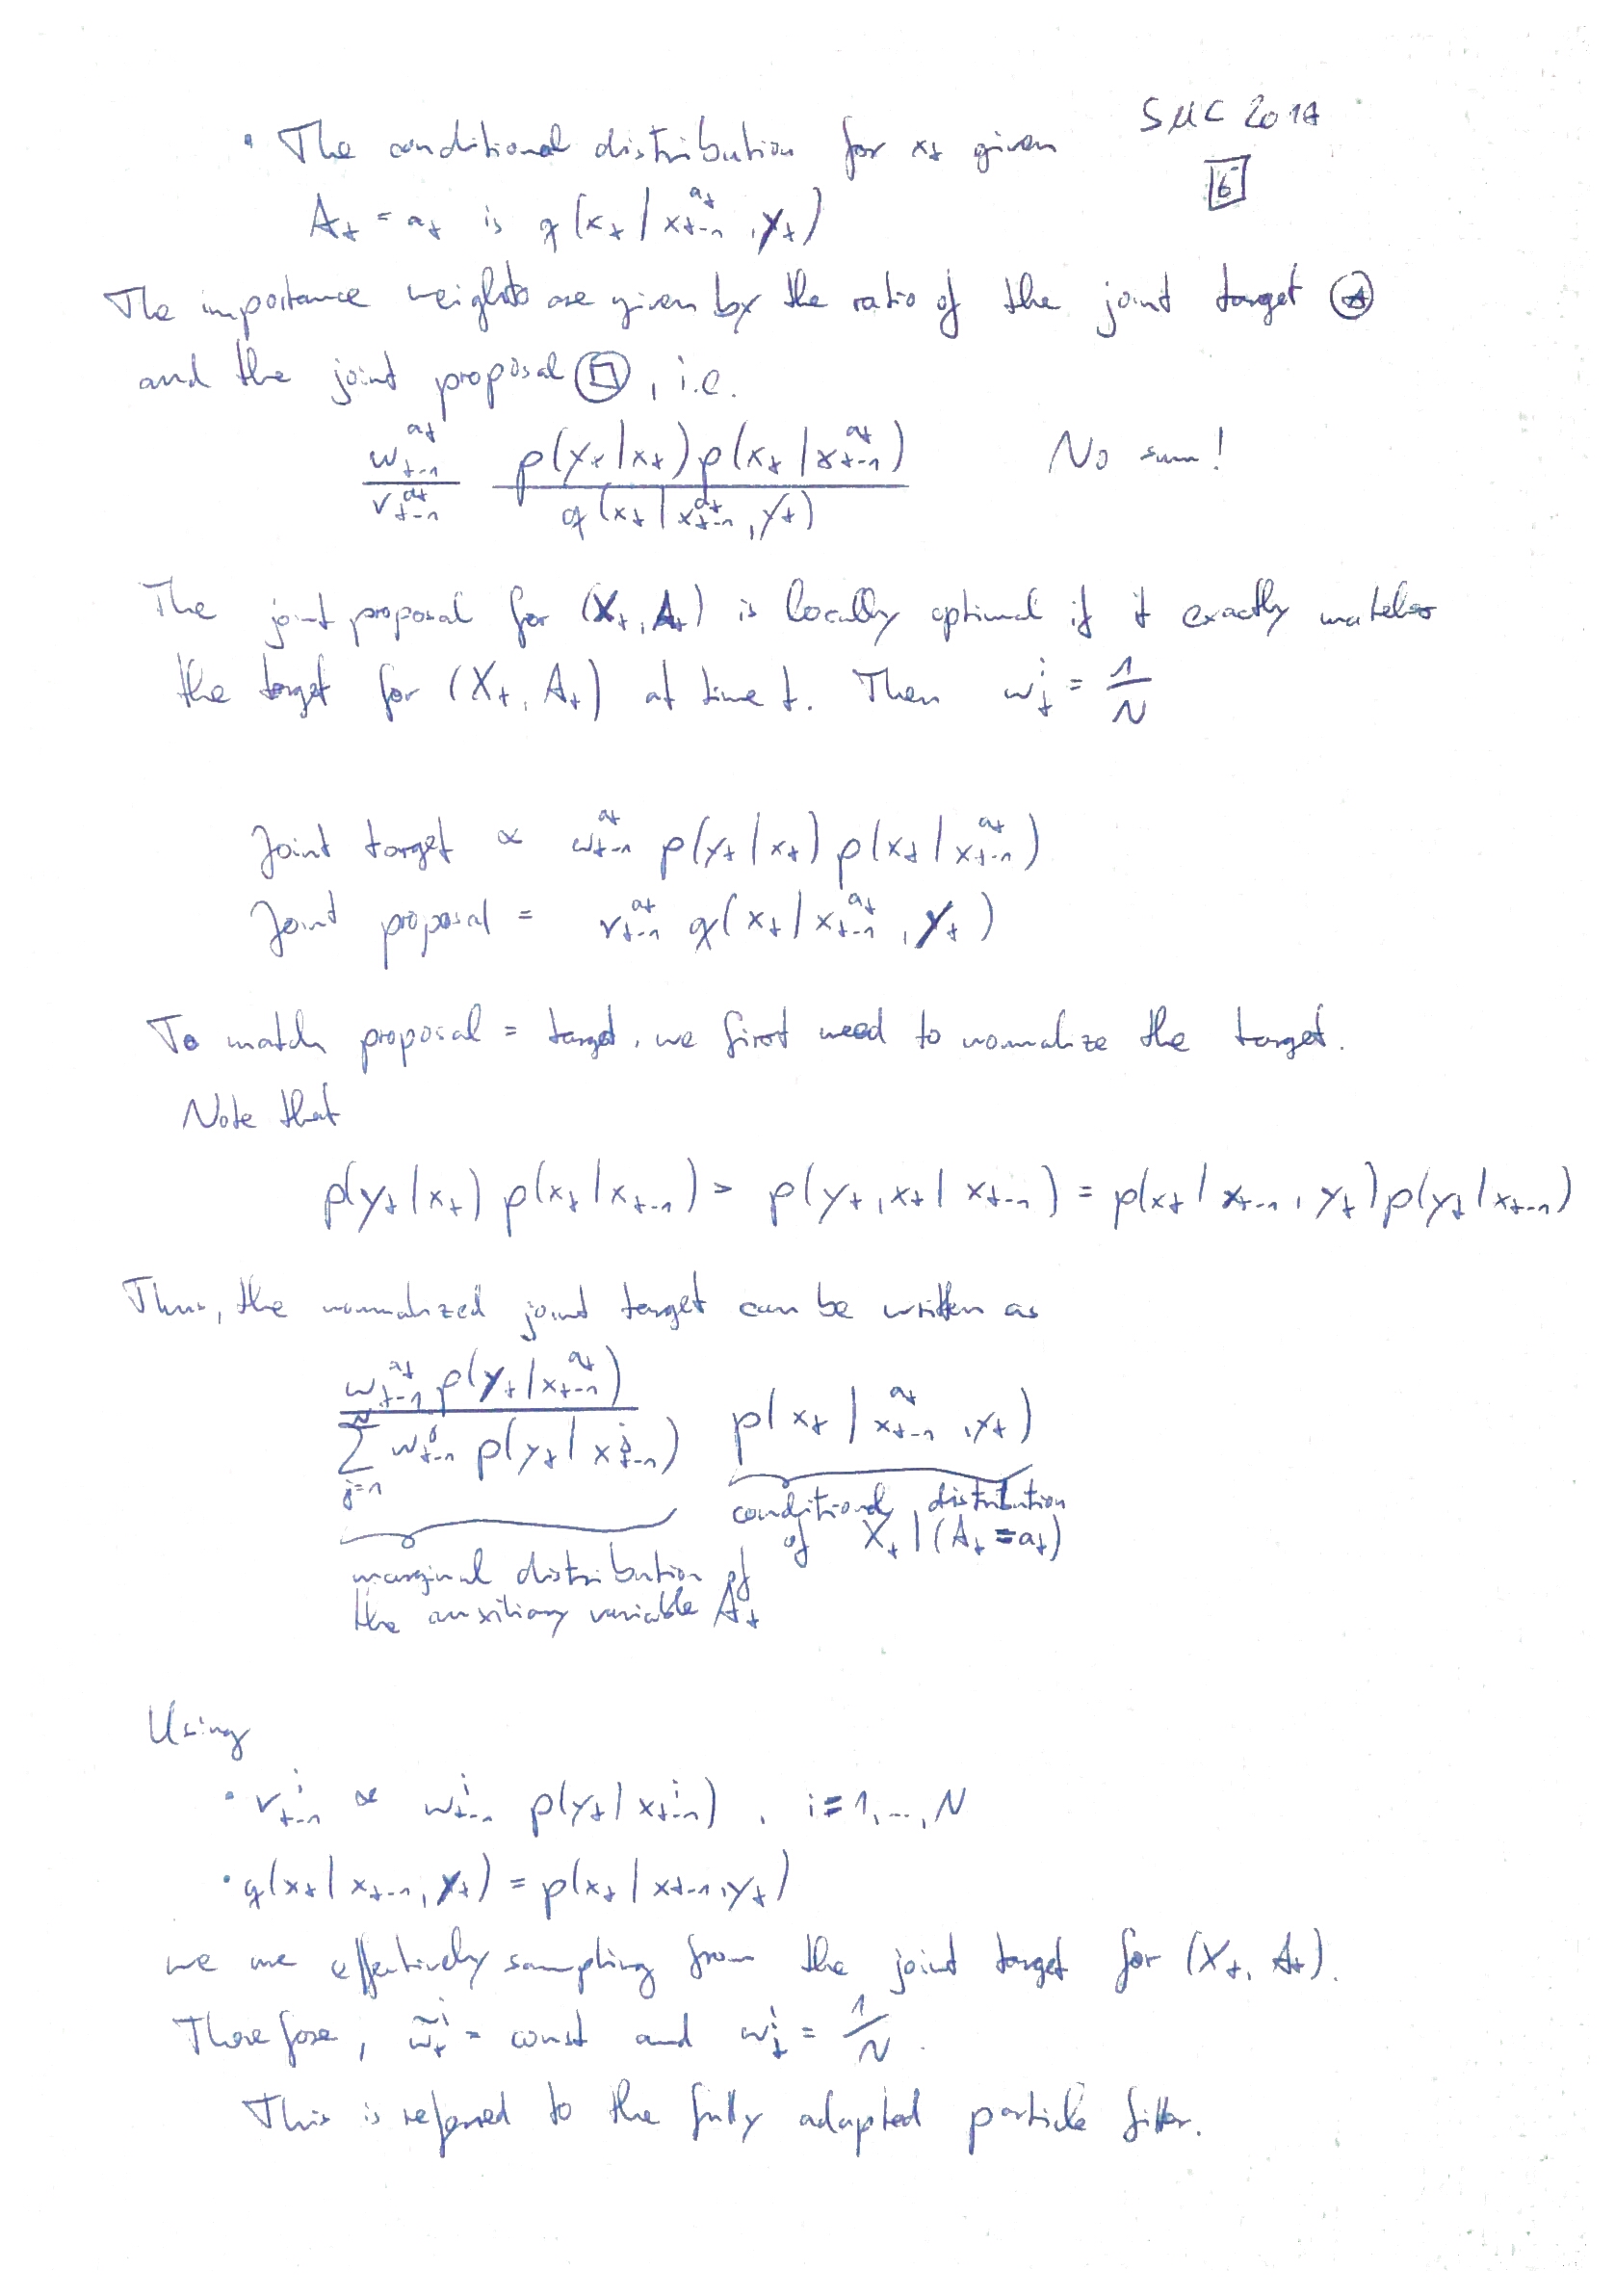 SMC 2017
6
• The conditional distribution for x_t given
A_t = a_t is q(x_t | x_{t-1}^{a_t}, y_t)
The importance weights are given by the ratio of the joint target ☆
and the joint proposal □, i.e.
w_{t-1}^{a_t} / v_{t-1}^{a_t} p(y_t | x_t) p(x_t | x_{t-1}^{a_t}) / q(x_t | x_{t-1}^{a_t}, y_t) No sum!
The joint proposal for (X_t, A_t) is locally optimal if it exactly matches
the target for (X_t, A_t) at time t. Then w_t^i = 1/N
Joint target ∝ w_{t-1}^{a_t} p(y_t | x_t) p(x_t | x_{t-1}^{a_t})
Joint proposal = v_{t-1}^{a_t} q(x_t | x_{t-1}^{a_t}, y_t)
To match proposal = target, we first need to normalize the target.
Note that
p(y_t | x_t) p(x_t | x_{t-1}) = p(y_t, x_t | x_{t-1}) = p(x_t | x_{t-1}, y_t) p(y_t | x_{t-1})
Thus, the normalized joint target can be written as
w_{t-1}^{a_t} p(y_t | x_{t-1}^{a_t}) / ∑_{j=1}^N w_{t-1}^j p(y_t | x_{t-1}^j) p(x_t | x_{t-1}^{a_t}, y_t)
conditional distribution
of X_t | (A_t = a_t)
marginal distribution of
the auxiliary variable A_t
Using
• v_{t-1}^i ∝ w_{t-1}^i p(y_t | x_{t-1}^i), i = 1, ..., N
• q(x_t | x_{t-1}, y_t) = p(x_t | x_{t-1}, y_t)
we are effectively sampling from the joint target for (X_t, A_t).
Therefore, w̃_t^i = const and w_t^i = 1/N.
This is referred to the fully adapted particle filter.